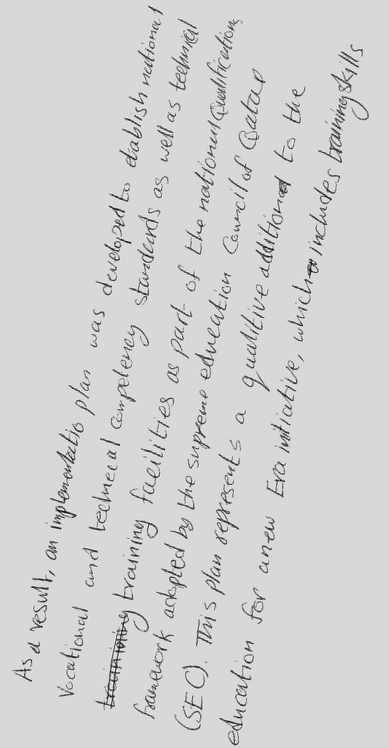 As a result, an implementatio plan was developed to establish national
Vocational and technical competency standards as well as technical
training facilities as part of the national Qualifications
framework adopted by the supreme education Council of Qatar
(SEC). This plan represents a qualitive addition to the
education for a new Era initiative, which includes training skills